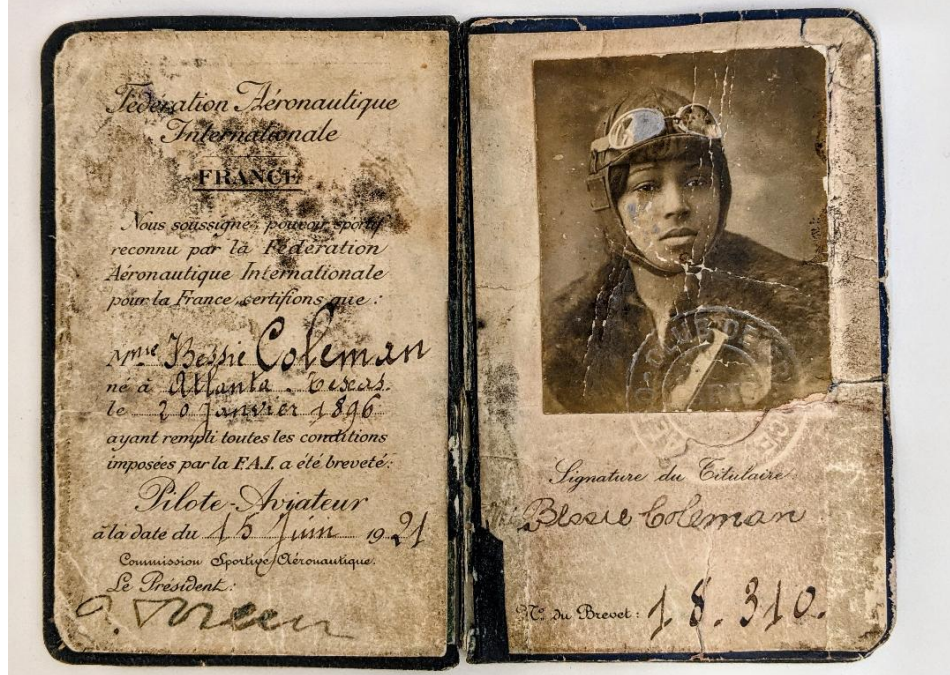 Fédération Aéronautique
Internationale
FRANCE
Nous soussignés, pouvoir sportif
reconnu par la Fédération
Aéronautique Internationale
pour la France, certifions que :
Mme Bessie Coleman
né à Atlanta Texas.
le 20 Janvier 1896
ayant rempli toutes les conditions
imposées par la F.A.I. a été breveté:
Pilote-Aviateur
à la date du 15 Juin 1921
Commission Sportive Aéronautique.
Le Président:
Signature du Titulaire
Bessie Coleman
No. du Brevet: 18.310.